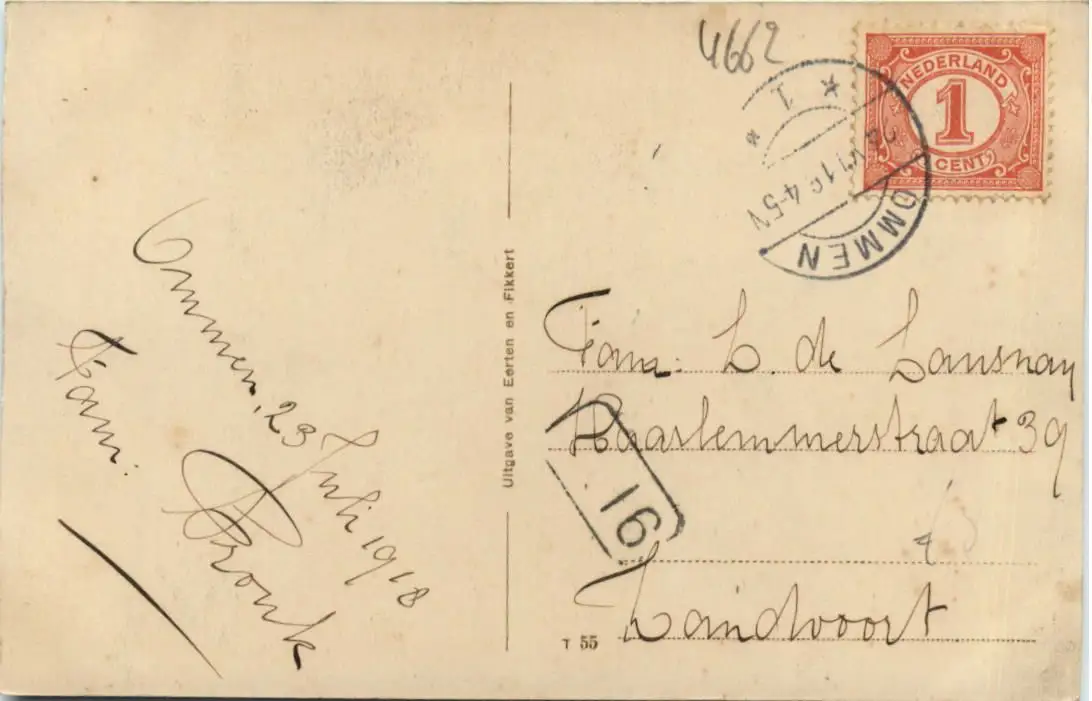 4662
NEDERLAND
1
CENT
1
4-5V
OMMEN
Ommen, 23 Juli 1918
Fam: Pronk
Uitgave van Eerten en Fikkert
Fam: L. de
Haarlemmerstraat 39
16
Zandvoort
T 55